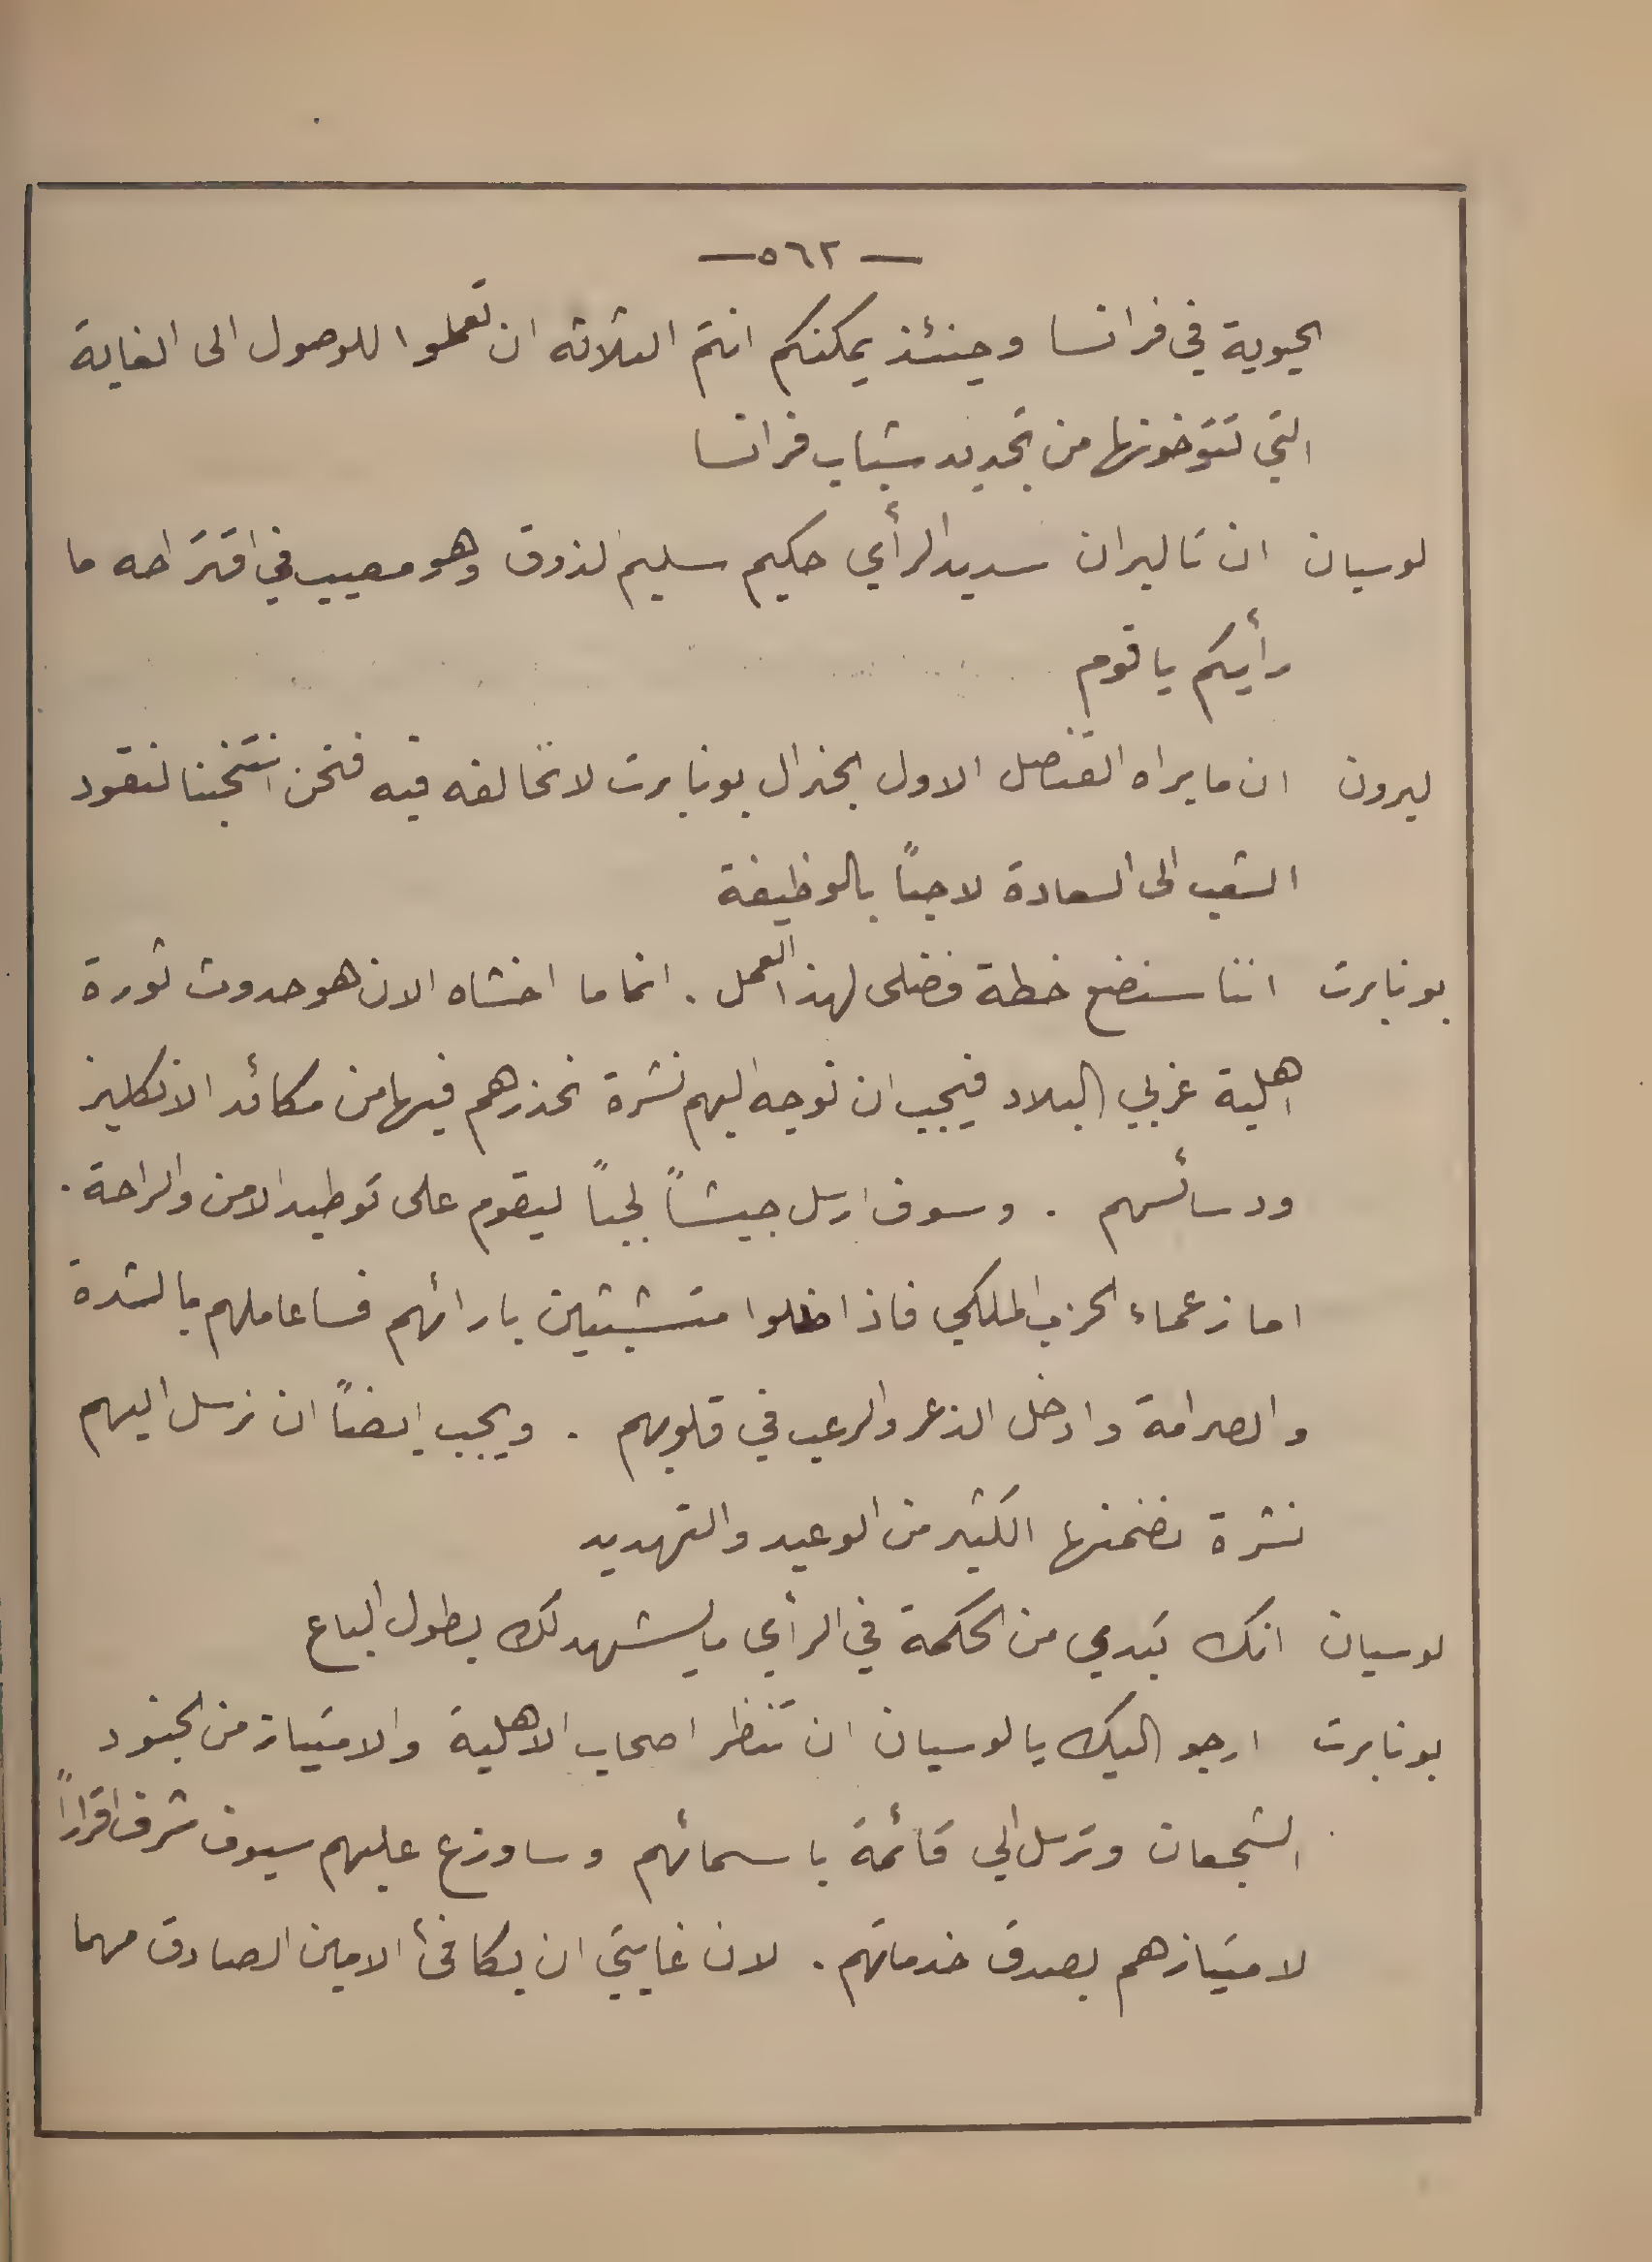 — ٥٦٢ —
الحيوية في فرانسا وحينئذ يمكنكم انتم الثلاثه ان تعملوا للوصول الى الغاية
التي تتوخونها من تجديد شباب فرانسا
لوسيان ان تاليران سديد الرأي حكيم سليم الذوق وهو مصيب في اقتراحه ما
رأيكم يا قوم
ليرون ان ما يراه القنصل الاول الجنرال بونابرت لا نخالفه فيه فنحن انتخبنا لنقود
الشعب الى السعادة لا حباً بالوظيفة
بونابرت اننا سنضع خطة فضلى لهذا العمل . انما ما اخشاه الان هو حدوث ثورة
اهلية غربي البلاد فيجب ان نوجه اليهم نشرة نحذرهم فيها من مكائد الانكليز
ودسائسهم . وسوف ارسل جيشاً لجباً ليقوم على توطيد الامن والراحة .
اما زعماء الحزب الملكي فاذا ظلوا متشبثين بارائهم فساعاملهم بالشدة
والصرامة وادخل الذعر والرعب في قلوبهم . ويجب ايضاً ان نرسل اليهم
نشرة نضمنها الكثير من الوعيد والتهديد
لوسيان انك تبدي من الحكمة في الرأي ما يشهد لك بطول الباع
بونابرت ارجو اليك يا لوسيان ان تنظر اصحاب الاهلية والامتياز من الجنود
الشجعان وترسل الي قائمة باسمائهم وساوزع عليهم سيوف شرف اقراراً
لامتيازهم بصدق خدماتهم . لان غايتي ان يكافئ الامين الصادق مهما